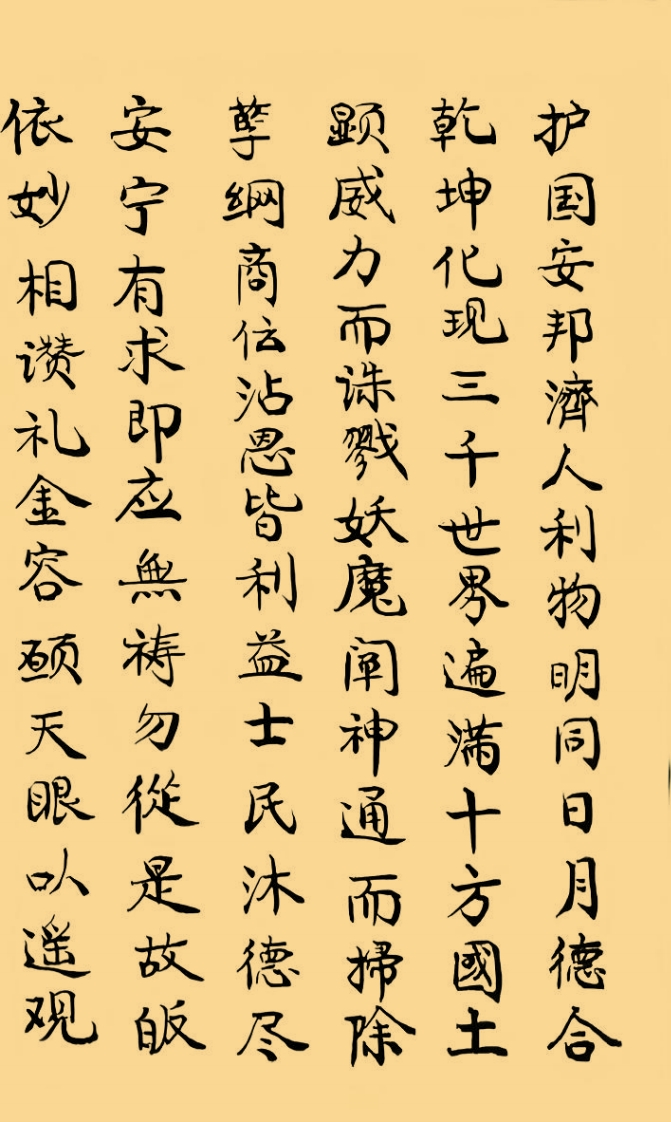 护国安邦濟人利物明同日月德合
乾坤化现三千世界遍满十方國土
显威力而诛戮妖魔阐神通而掃除
孽纲商伝沾恩皆利益士民沐德尽
安宁有求即应無祷勿從是故皈
依妙相讃礼金容愿天眼以遥观